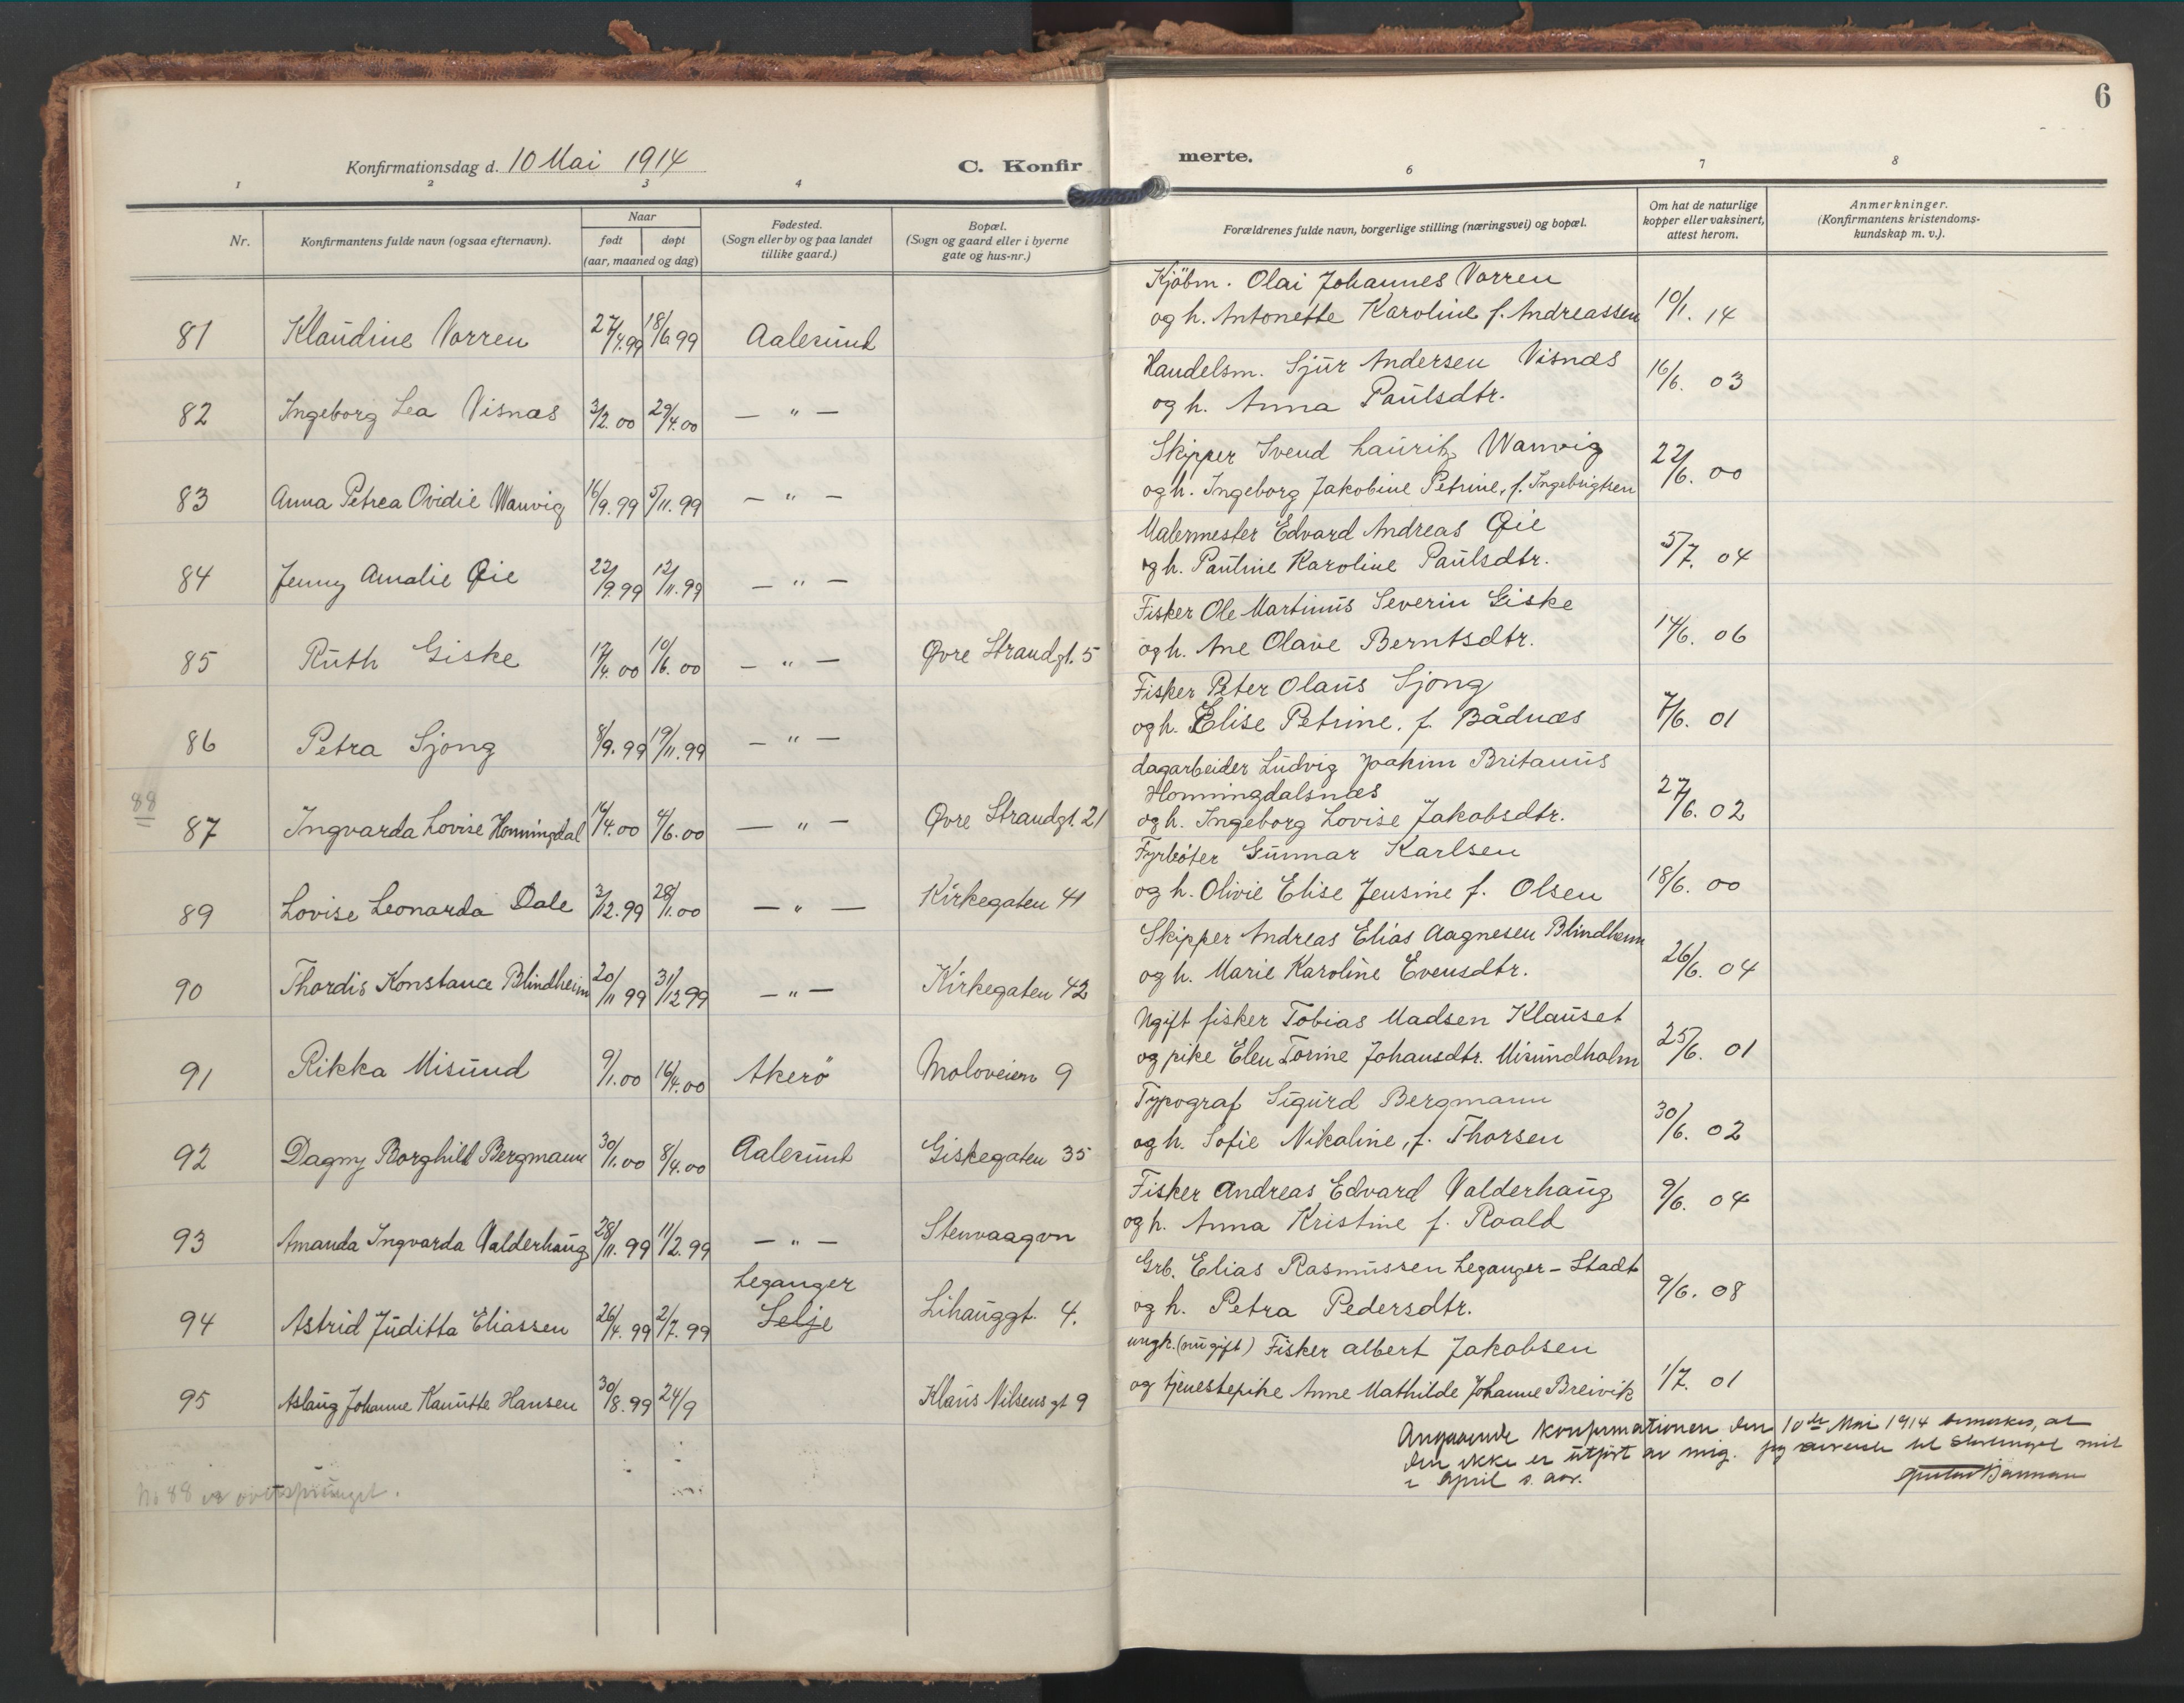 6
Konfirmationsdag d. 10 Mai 1914
C. Konfir
merte.
1 2 3 4 6 7 8
Nr.
Konfirmantens fulde navn (ogsaa efternavn).
Naar
født døpt
(aar, maaned og dag)
Fødested.
(Sogn eller by og paa landet
tillike gaard.)
Bopæl.
(Sogn og gaard eller i byerne
gate og hus-nr.)
Forældrenes fulde navn, borgerlige stilling (næringsvei) og bopæl.
Om hat de naturlige
kopper eller vaksinert,
attest herom.
Anmerkninger.
(Konfirmantens kristendoms-
kundskap m. v.).
Kjöbm. Olai Johannes Vorren
81 Klaudine Vorren 27/4.99 18/6 99 Aalesund og h. Antonette Karoline f. Andreassen 10/1. 14
Handelsm. Sjur Andersen Visnæs
82 Ingeborg Lea Visnæs 3/2.00 29/4.00 — " — og h. Anna Paulsdtr. 16/6. 03
Skipper Svend Lauritz Wanvig
83 Anna Petrea Ovidie Wanvig 16/9.99 5/11.99 — " — og h. Ingeborg Jakobine Petrine, f. Ingebrigtsen 22/6. 00
Malermester Edvard Andreas Øie
84 Jenny Amalie Øie 22/9.99 12/11.99 — " — og h. Pauline Karoline Paulsdtr. 5/7. 04
Fisker Ole Martinus Severin Giske
85 Ruth Giske 17/4.00 10/6.00 — " — Øvre Strandgt. 5 og h. Ane Olave Berntsdtr. 14/6. 06
Fisker Peter Olaus Sjong
86 Petra Sjong 8/9.99 19/11.99 — " — og h. Elise Petrine, f. Bådnæs 7/6. 01
dagarbeider Ludvig Joakim Britanus
Honningdalsnæs
88
87 Ingvarda Lovise Honningdal 14/4.00 4/6.00 — " — Øvre Strandgt. 21 og h. Ingeborg Lovise Jakobsdtr. 27/6. 02
Fyrbøter Gunnar Karlsen
89 Lovise Leonarda Dale 3/12.99 28/1.00 — " — Kirkegaten 41 og h. Olivie Elise Jensine f. Olsen 18/6. 00
Skipper Andreas Elias Aagnesen Blindheim
90 Thordis Konstance Blindheim 20/11 99 31/12 99 — " — Kirkegaten 42 og h. Marie Karoline Evensdtr. 26/6. 04
Ugift fisker Tobias Madsen Klauset
91 Rikka Misund 9/1.00 16/4.00 Akerö Moloveien 9 og pike Elen Torine Johansdtr. Misundholm 25/6. 01
Typograf Sigurd Bergmann
92 Dagny Borghild Bergmann 30/1.00 8/4.00 Aalesund Giskegaten 35 og h. Sofie Nikoline, f. Thorsen 30/6. 02
Fisker Andreas Edvard Valderhaug
93 Amanda Ingvarda Valderhaug 28/11.99 11/2.99 — " — Stenvaagvn og h. Anna Kristine f. Roald 9/6. 04
Grb. Elias Rasmussen Leganger - Stadt
Leganger
94 Astrid Juditta Eliassen 26/4.99 2/7.99 Selje Lihauggt. 4. og h. Petra Pedersdtr. 9/6. 08
ungk. (nu gift) Fisker Albert Jakobsen
95 Aslaug Johanne Kanutte Hansen 30/8.99 24/9 Klaus Nilsens gt 9 og tjenestepike Anne Mathilde Johanne Breivik 1/7. 01
Angaaende konfirmationen den 10de Mai 1914 bemerkes, at
den ikke er utført av mig. Jeg avreiste til Stortinget midt
i April s. aar.
No 88 er oversprunget.